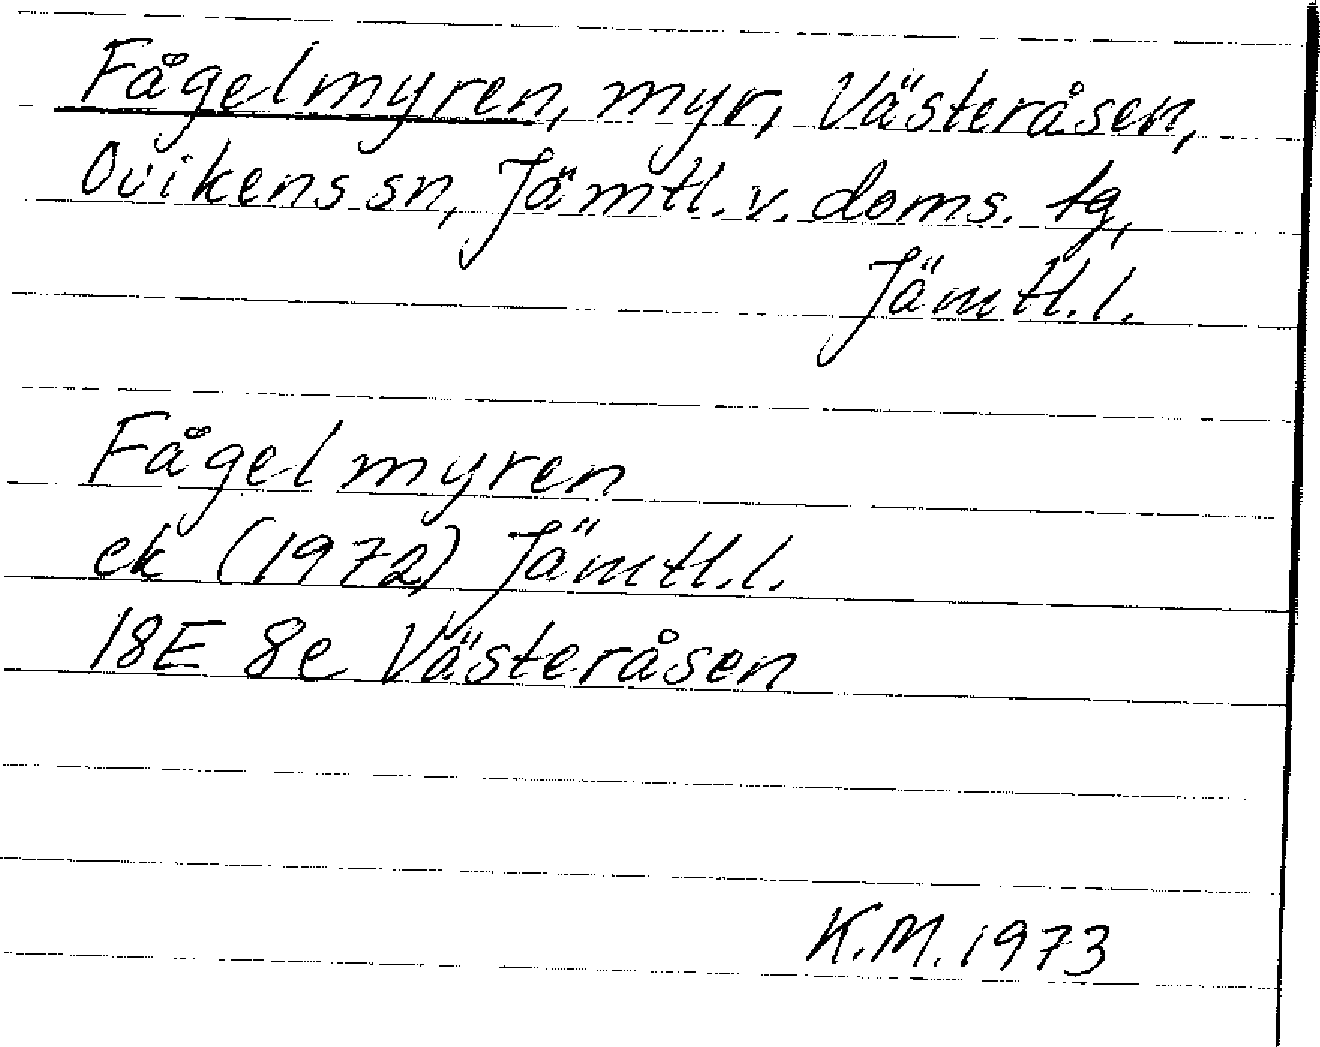 Fågelmyren, myr, Västeråsen,
Ovikens sn, Jämtl. v. doms. tg,
Jämtl. l.
Fågelmyren
ek (1972) Jämtl. l.
18E 8e Västeråsen
K.M. 1973